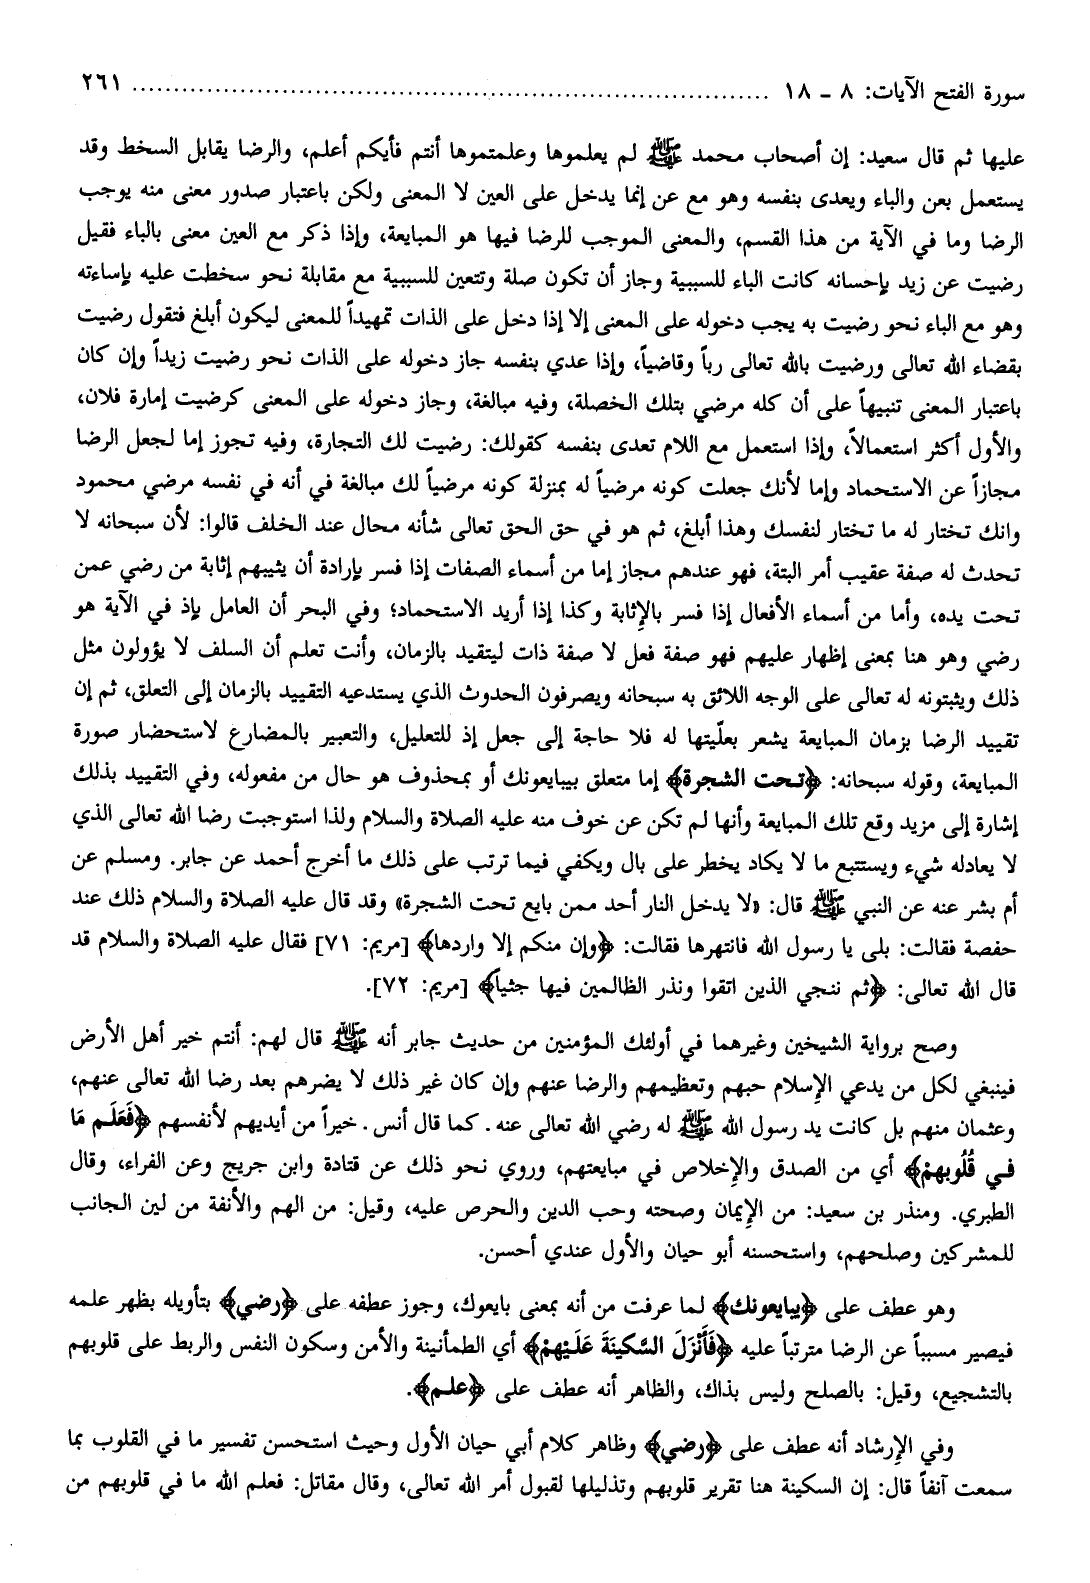 سورة الفتح الآيات: ٨ - ١٨ ........................................................................ ٢٦١
عليها ثم قال سعيد: إن أصحاب محمد ﷺ لم يعلموها وعلمتموها أنتم فأيكم أعلم، والرضا يقابل السخط وقد
يستعمل بعن والباء ويعدى بنفسه وهو مع عن إنما يدخل على العين لا المعنى ولكن باعتبار صدور معنى منه يوجب
الرضا وما في الآية من هذا القسم، والمعنى الموجب للرضا فيها هو المبايعة، وإذا ذكر مع العين معنى بالباء فقيل
رضيت عن زيد بإحسانه كانت الباء للسببية وجاز أن تكون صلة وتتعين للسببية مع مقابلة نحو سخطت عليه بإساءته
وهو مع الباء نحو رضيت به يجب دخوله على المعنى إلا إذا دخل على الذات تمهيداً للمعنى ليكون أبلغ فتقول رضيت
بقضاء الله تعالى ورضيت بالله تعالى رباً وقاضياً، وإذا عدي بنفسه جاز دخوله على الذات نحو رضيت زيداً وإن كان
باعتبار المعنى تنبيهاً على أن كله مرضي بتلك الخصلة، وفيه مبالغة، وجاز دخوله على المعنى كرضيت إمارة فلان،
والأول أكثر استعمالاً، وإذا استعمل مع اللام تعدى بنفسه كقولك: رضيت لك التجارة، وفيه تجوز إما لجعل الرضا
مجازاً عن الاستحماد وإما لأنك جعلت كونه مرضياً له بمنزلة كونه مرضياً لك مبالغة في أنه في نفسه مرضي محمود
وانك تختار له ما تختار لنفسك وهذا أبلغ، ثم هو في حق الحق تعالى شأنه محال عند الخلف قالوا: لأن سبحانه لا
تحدث له صفة عقيب أمر البتة، فهو عندهم مجاز إما من أسماء الصفات إذا فسر بإرادة أن يثيبهم إثابة من رضي عمن
تحت يده، وأما من أسماء الأفعال إذا فسر بالإثابة وكذا إذا أريد الاستحماد؛ وفي البحر أن العامل بإذ في الآية هو
رضي وهو هنا بمعنى إظهار عليهم فهو صفة فعل لا صفة ذات ليتقيد بالزمان، وأنت تعلم أن السلف لا يؤولون مثل
ذلك ويثبتونه له تعالى على الوجه اللائق به سبحانه ويصرفون الحدوث الذي يستدعيه التقييد بالزمان إلى التعلق، ثم إن
تقييد الرضا بزمان المبايعة يشعر بعلّيتها له فلا حاجة إلى جعل إذ للتعليل، والتعبير بالمضارع لاستحضار صورة
المبايعة، وقوله سبحانه: ﴿تحت الشجرة﴾ إما متعلق بيبايعونك أو بمحذوف هو حال من مفعوله، وفي التقييد بذلك
إشارة إلى مزيد وقع تلك المبايعة وأنها لم تكن عن خوف منه عليه الصلاة والسلام ولذا استوجبت رضا الله تعالى الذي
لا يعادله شيء ويستتبع ما لا يكاد يخطر على بال ويكفي فيما ترتب على ذلك ما أخرج أحمد عن جابر. ومسلم عن
أم بشر عنه عن النبي ﷺ قال: «لا يدخل النار أحد ممن بايع تحت الشجرة» وقد قال عليه الصلاة والسلام ذلك عند
حفصة فقالت: بلى يا رسول الله فانتهرها فقالت: ﴿وإن منكم إلا واردها﴾ [مريم: ٧١] فقال عليه الصلاة والسلام قد
قال الله تعالى: ﴿ثم ننجي الذين اتقوا ونذر الظالمين فيها جثياً﴾ [مريم: ٧٢].
وصح برواية الشيخين وغيرهما في أولئك المؤمنين من حديث جابر أنه ﷺ قال لهم: أنتم خير أهل الأرض
فينبغي لكل من يدعي الإسلام حبهم وتعظيمهم والرضا عنهم وإن كان غير ذلك لا يضرهم بعد رضا الله تعالى عنهم،
وعثمان منهم بل كانت يد رسول الله ﷺ له رضي الله تعالى عنه . كما قال أنس . خيراً من أيديهم لأنفسهم ﴿فَعَلَم مَا
في قُلُوبهمْ﴾ أي من الصدق والإخلاص في مبايعتهم، وروي نحو ذلك عن قتادة وابن جريج وعن الفراء، وقال
الطبري. ومنذر بن سعيد: من الإيمان وصحته وحب الدين والحرص عليه، وقيل: من الهم والأنفة من لين الجانب
للمشركين وصلحهم، واستحسنه أبو حيان والأول عندي أحسن.
وهو عطف على ﴿يبايعونك﴾ لما عرفت من أنه بمعنى بايعوك، وجوز عطفه على ﴿رضي﴾ بتأويله بظهر علمه
فيصير مسبباً عن الرضا مترتباً عليه ﴿فَأَنْزَلَ السَّكينَةَ عَلَيْهمْ﴾ أي الطمأنينة والأمن وسكون النفس والربط على قلوبهم
بالتشجيع، وقيل: بالصلح وليس بذاك، والظاهر أنه عطف على ﴿علم﴾.
وفي الإرشاد أنه عطف على ﴿رضي﴾ وظاهر كلام أبي حيان الأول وحيث استحسن تفسير ما في القلوب بما
سمعت آنفاً قال: إن السكينة هنا تقرير قلوبهم وتذليلها لقبول أمر الله تعالى، وقال مقاتل: فعلم الله ما في قلوبهم من